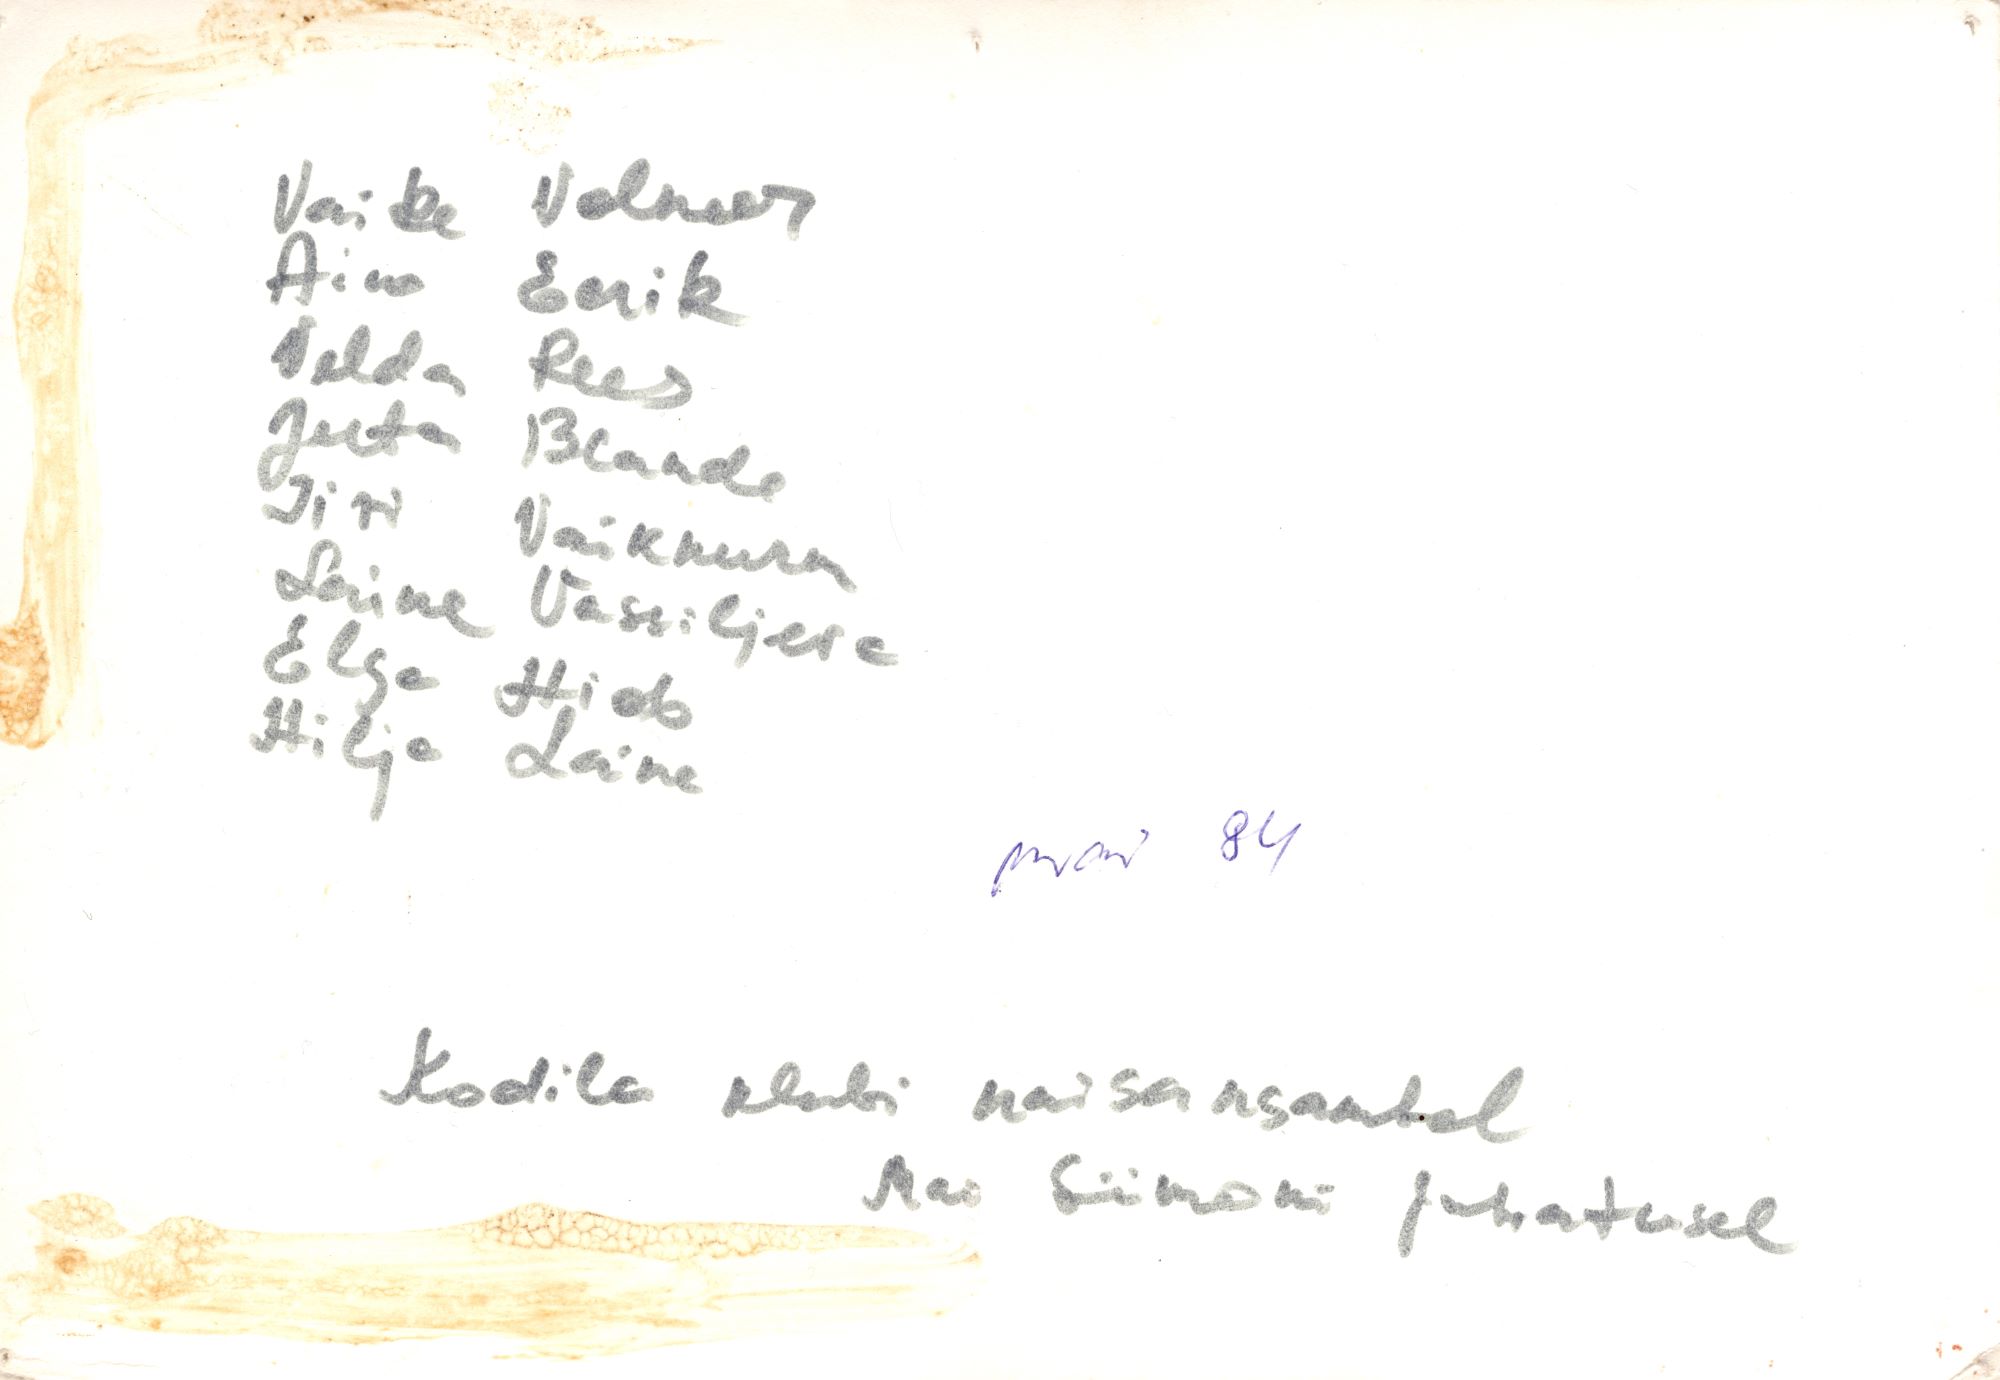 Vaike Volmer
Aino Eerik
Velda Rees
Juta Blande
Siri Vaiknurm
Laine Vassiljeva
Elga Hiob
Hilja Laine
mai 84
Kodila klubi naisansambel
Mai Siimoni juhatusel